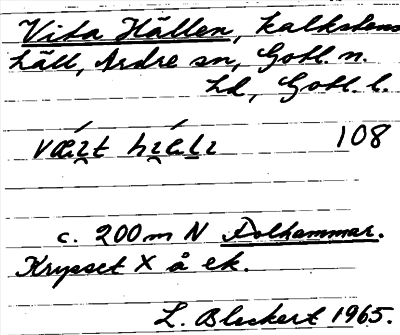 Vita Hällen, kalkstens
häll, Ardre sn, Gotl. n.
hd, Gotl. l.
108
c. 200 m N Folhammar.
Krysset X å ek.
L. Bleckert 1965.